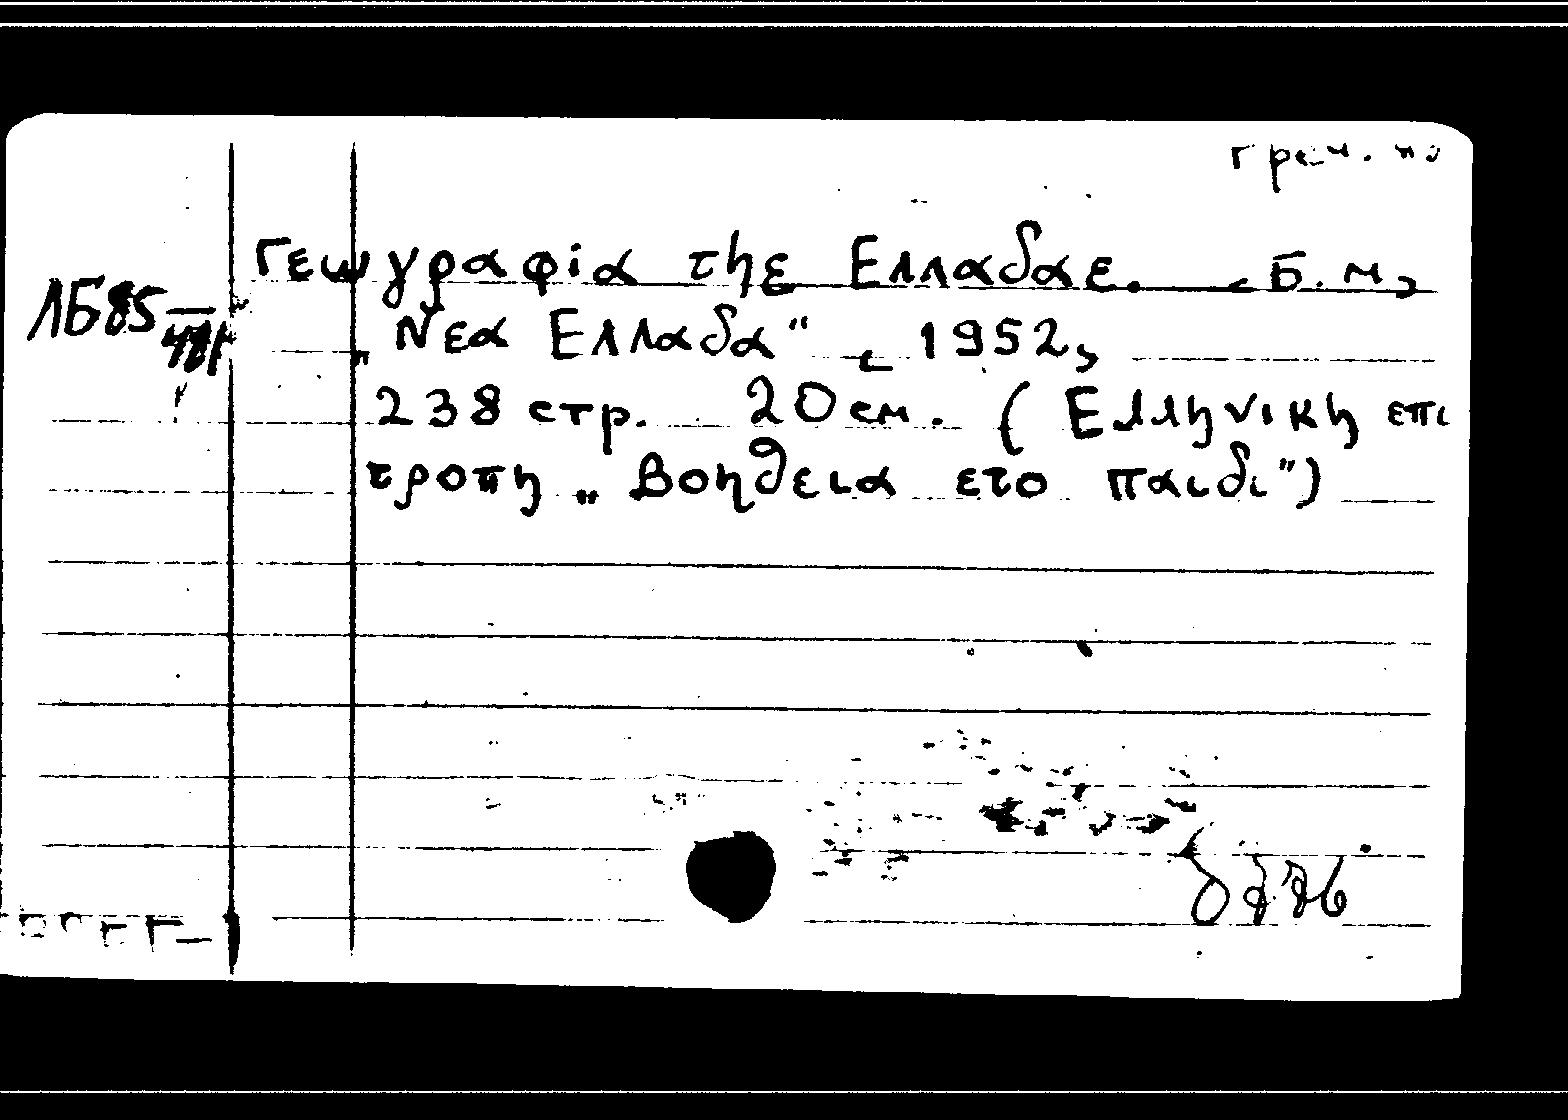 греч.
Γεωγραφία τηε Ελλαδαε. <Б.м,>
ЛБ85
481
„Νεα Ελλαδα“ <1952>
238 стр. 20 см. (Ελληνικη επι
τροπη „Βοηθεια ετο παιδι”)